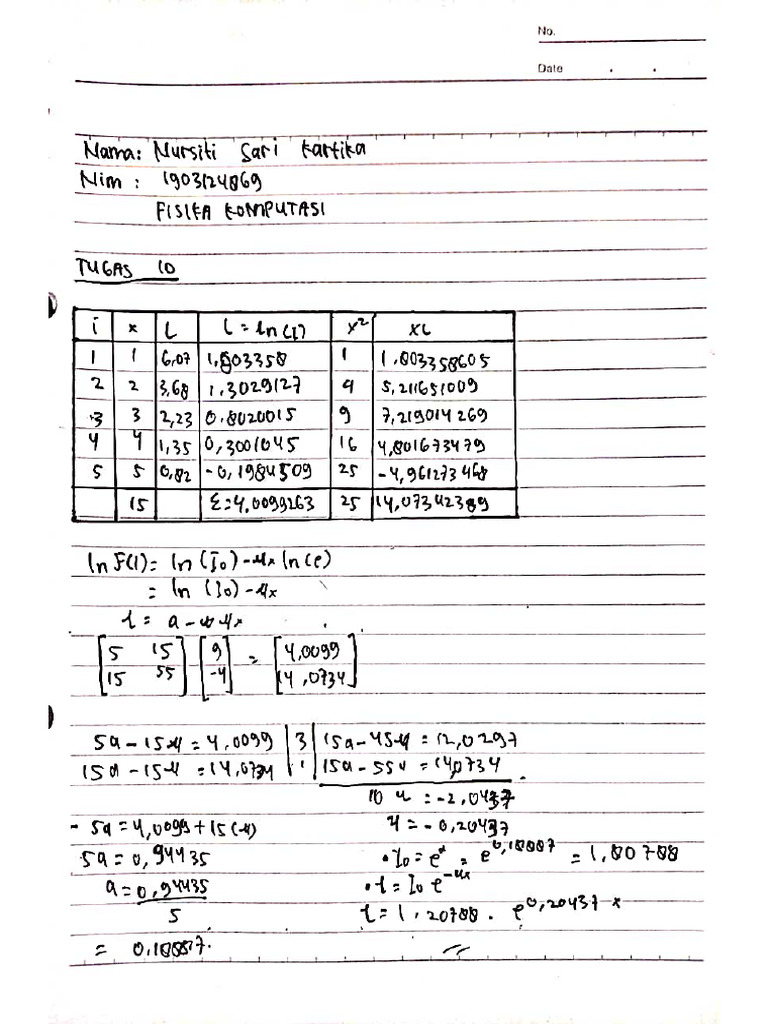 No.
Date
Nama: Nursiti Sari Kartika
Nim : 1903124869
FISIKA KOMPUTASI
TUGAS 10
i x L L = ln (I) x² xL
1 1 6,07 1,803358 1 1.803358605
2 2 3,68 1.3029127 4 5,211651009
3 3 2,23 0.8020015 9 7,219014269
4 4 1,35 0,3001045 16 4,801673479
5 5 0,82 -0,1984509 25 -4,961273468
15 Σ=4,0099263 25 14,07342389
ln F(I) = ln (I₀) - μx ln(e)
= ln (I₀) - μx
L = a - μx
[5 15] [9] = [4,0099]
[15 55] [-4] [14,0734]
5a - 15μ = 4,0099 | 3 | 15a - 45μ = 12,0297
15a - 15μ = 14,0734 | 1 | 15a - 55μ = 14,0734
10 μ = -2,0437
- 5a = 4,0099 + 15(μ) μ = -0,20437
5a = 0,94435 • I₀ = eᵃ = e^0,18887 = 1,80788
a = 0,94435 • I = I₀ e^-μx
5 I = 1,20788 . e^0,20437 x
= 0,18887.